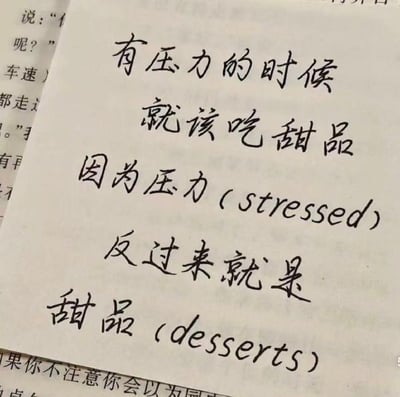 说：“
呢？”
车速
都走
。”
有再
有压力的时候
就该吃甜品
因为压力（stressed）
反过来就是
甜品（desserts）
果你不注意你会以为